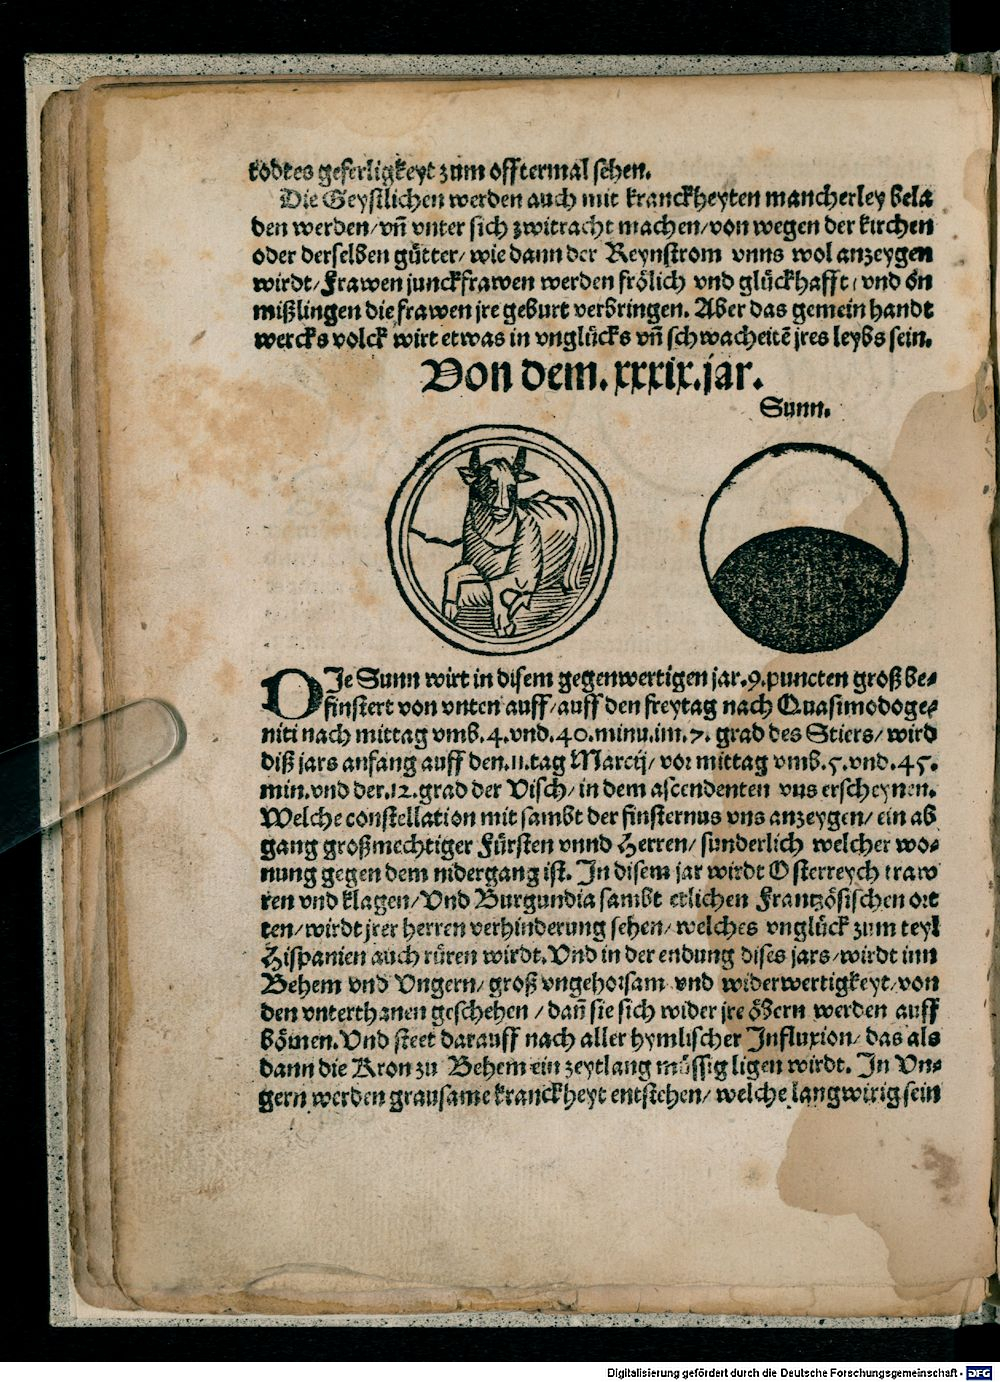 todtes geferligkeyt zum offtermal sehen.
Die Geystlichen werden auch mit kranckheyten mancherley bela
den werden/vñ vnter sich zwitracht machen/von wegen der kirchen
oder derselben gůtter/wie dann der Reynstrom vnns wol anzeygen
wirdt/Frawen junckfrawen werden frölich vnd glůckhafft/vnd ón
mißlingen die frawen jre geburt verbringen. Aber das gemein handt
wercks volck wirt etwas in vnglůcks vñ schwacheitẽ jres leybs sein.
Von dem.xxxix.jar.
Sunn.
DIe Sunn wirt in disem gegenwertigen jar.9.puncten groß be-
finstert von vnten auff/auff den freytag nach Quasimodoge-
niti nach mittag vmb.4.vnd.40.minu.im.7.grad des Stiers/wird
diß jars anfang auff den.11.tag Marcij/vor mittag vmb.5.vnd.45.
min.vnd der.12.grad der Visch/in dem ascendenten vns erscheynen.
Welche constellation mit sambt der finsternus vns anzeygen/ein ab
gang großmechtiger Fürsten vnnd Herren/sunderlich welcher wo-
nung gegen dem nidergang ist. In disem jar wirdt Osterreych traw
ren vnd klagen/Vnd Burgundia sambt etlichen Frantzösischen ort
ten/wirdt jrer herren verhinderung sehen/welches vnglůck zum teyl
Hispanien auch růren wirdt. Vnd in der endung dises jars/wirdt inn
Behem vnd Vngern/groß vngehorsam vnd widerwertigkeyt/von
den vnterthanen geschehen/dañ sie sich wider jre öbern werden auff
bömen. Vnd steet darauff nach aller hymlischer Influxion/das als
dann die Kron zu Behem ein zeytlang můssig ligen wirdt. In Vn-
gern werden grausame kranckheyt entstehen/welche langwirig sein
Digitalisierung gefördert durch die Deutsche Forschungsgemeinschaft - DFG